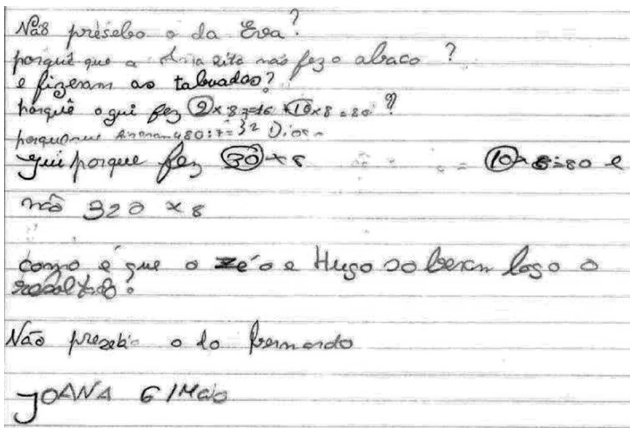 Não présebo o da Eva?
porquê que a Ana rita não fez o abaco?
e fizeram as tabuadas?
porquê o gui fez 2x8=16 10x8=80?
porque 480:7=32
gui porque fez 30x8 = 10x8=80 e
não 320 x8
como é que o zé o e Hugo soberam logo o
resoltado?
Não presebi o do bernardo
JOANA 6/Maio